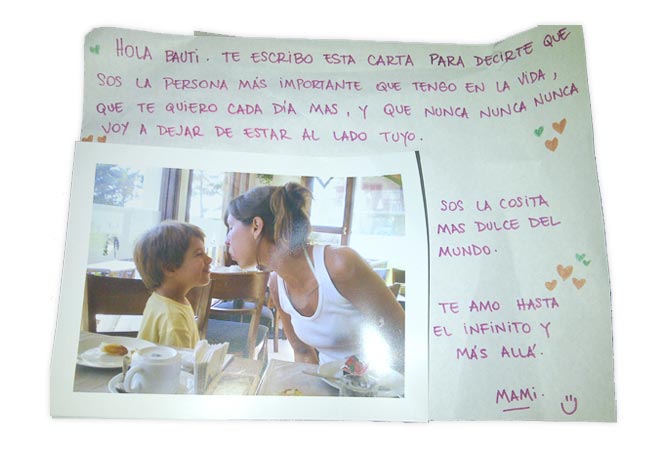 HOLA BAUTI. TE ESCRIBO ESTA CARTA PARA DECIRTE QUE
SOS LA PERSONA MÁS IMPORTANTE QUE TENGO EN LA VIDA,
QUE TE QUIERO CADA DÍA MAS, Y QUE NUNCA NUNCA NUNCA
VOY A DEJAR DE ESTAR AL LADO TUYO.
SOS LA COSITA
MAS DULCE DEL
MUNDO.
TE AMO HASTA
EL INFINITO Y
MÁS ALLÁ.
MAMI.